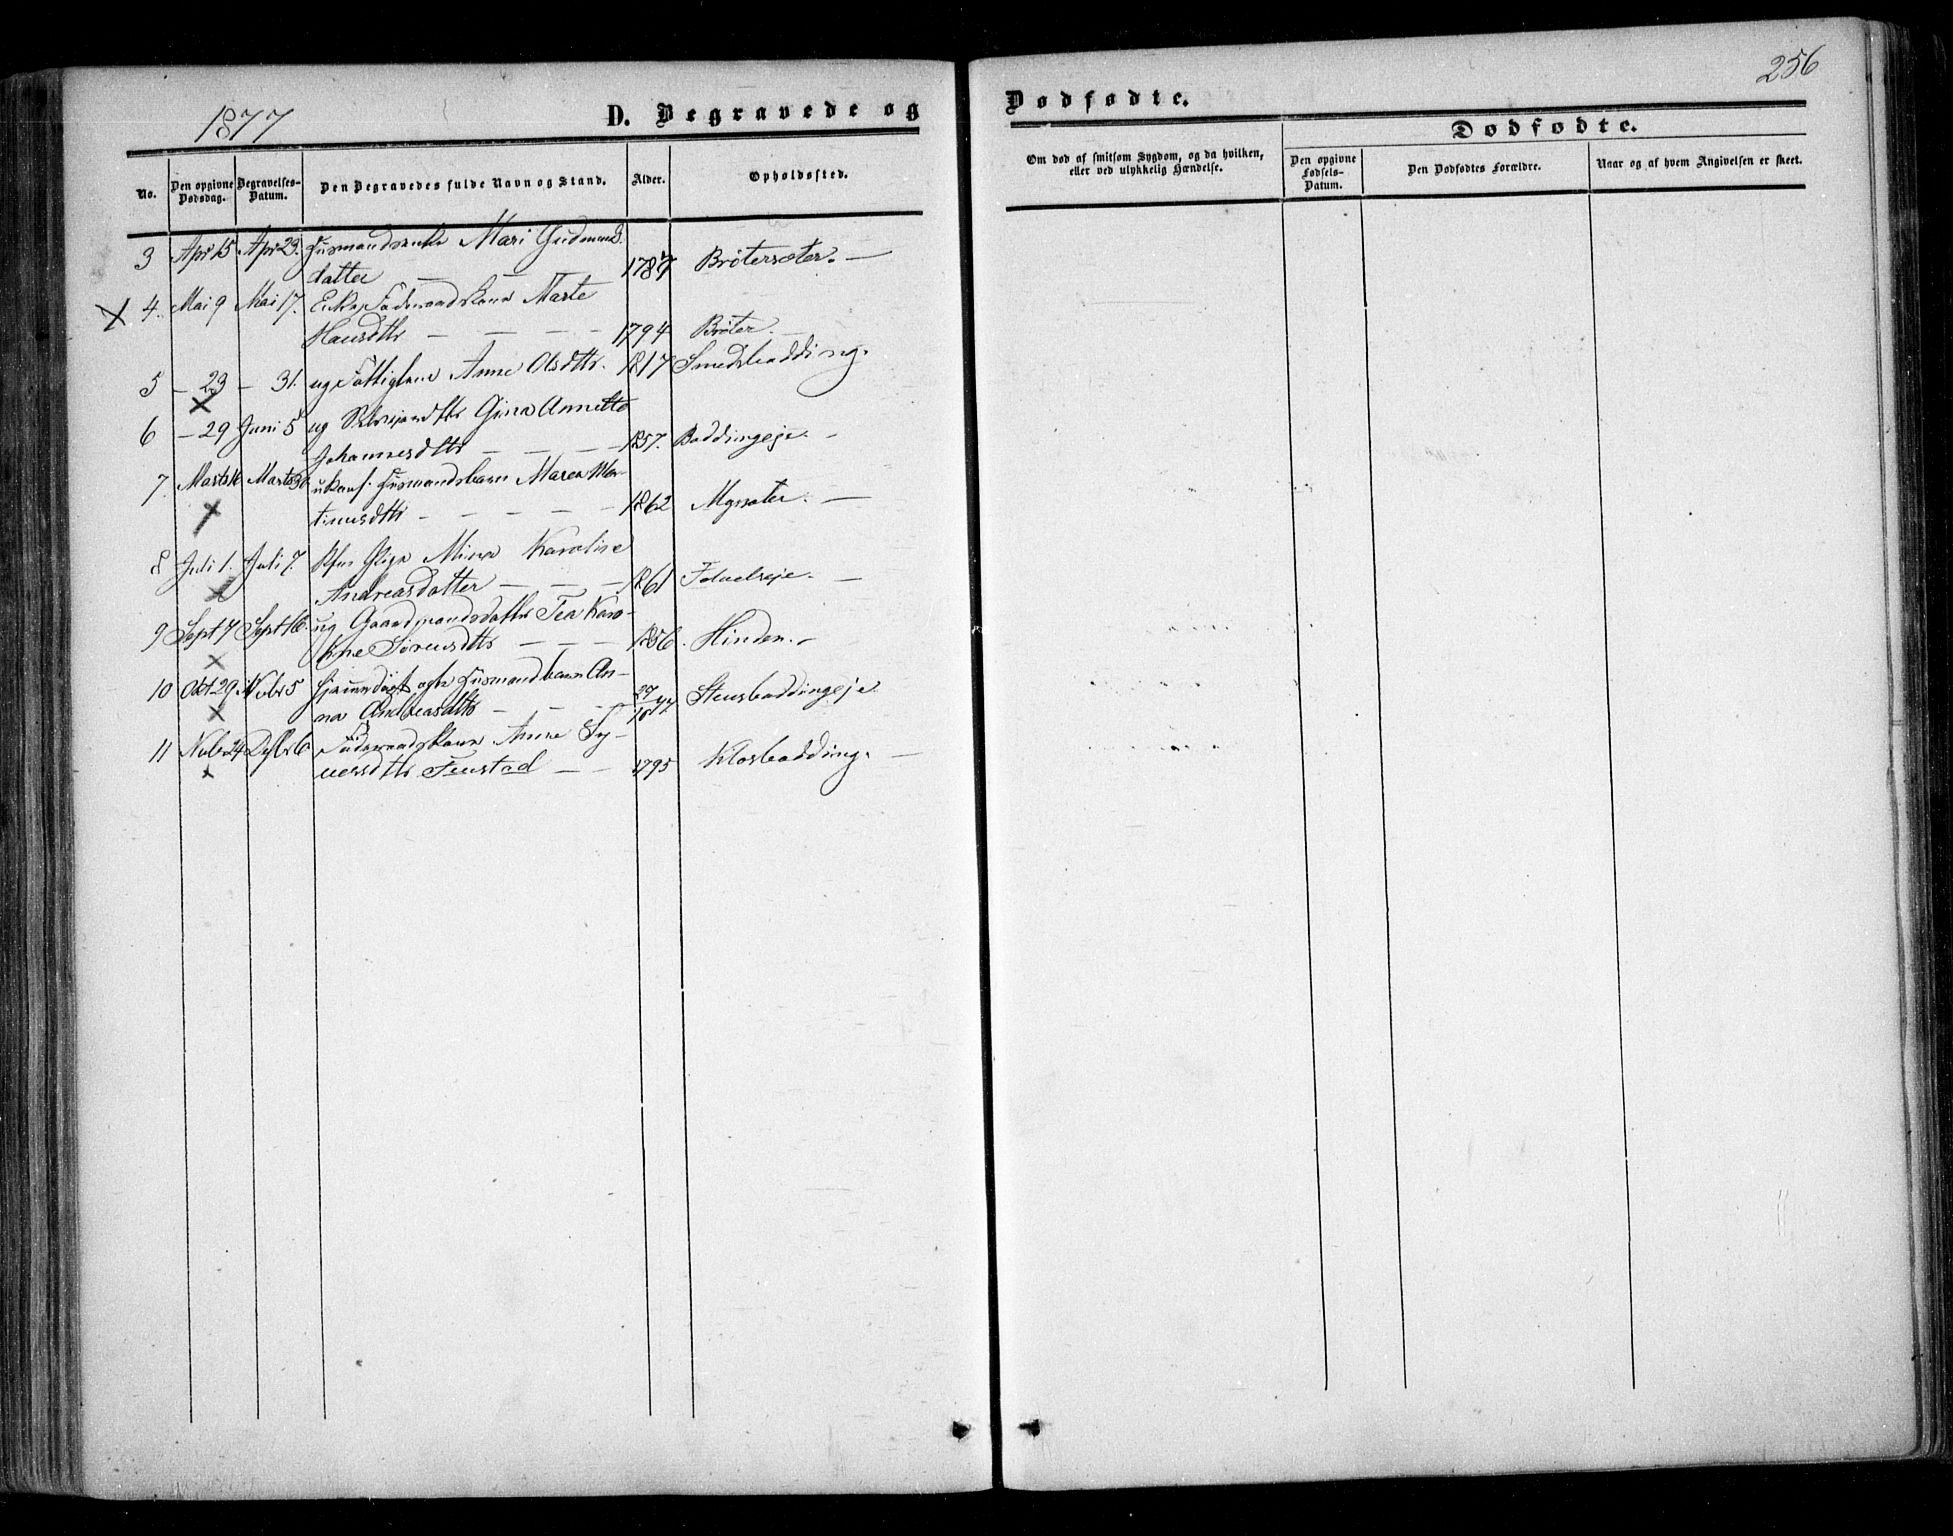 256
1877 D. Begravede og Dødfødte.
Dødfødte.
No. Den opgivne Dødsdag. Begravelses-Datum. Den Begravedes fulde Navn og Stand. Alder. Opholdssted.
Om død af smitsom Sygdom, og da hvilken, eller ved ulykkelig Hændelse. Den opgivne Fødsels-Datum. Den Dødfødtes Forældre. Naar og af hvem Angivelsen er skeet.
3 Apr 15 Apr 23. Husmandsenke Mari Gudmund.
datter — — 1787 Brötersæter. —
4. Mai 9 Mai 17. Enke, Føderaadskone Marte
Hansdtr — — — — 1794 Bröter. —
5 — 23 — 31. ug Fattiglem Anne Olsdtr. 1817 Smedsbødding.
6 — 29 Juni 5 ug Anette
Johannesdtr — — — — 1857. Bøddingeje. —
7. Marts 16 Marts 30 ukonf. Husmandsbarn Maren Mar-
tinusdtr — — — — — 1862 —
8 Juli 1. Juli 7. Pige Mina Karoline
Andreasdatter — — — 1861 —
9 Sept 7 Sept 16. ug Gaardmandsdatter Tea Karo-
line Sørensdtr — — — 1856. Hinden. —
10 Okt 29 Nvbr 5 Hjemmedøbt Husmandsbarn An-
na Andreasdtr — — — 27/10 77 Stensbøddingeje.
11 Nvbr 24 Føderaadskone Anne Sy-
versdtr Tenstad — — 1795 Klosbødding. —